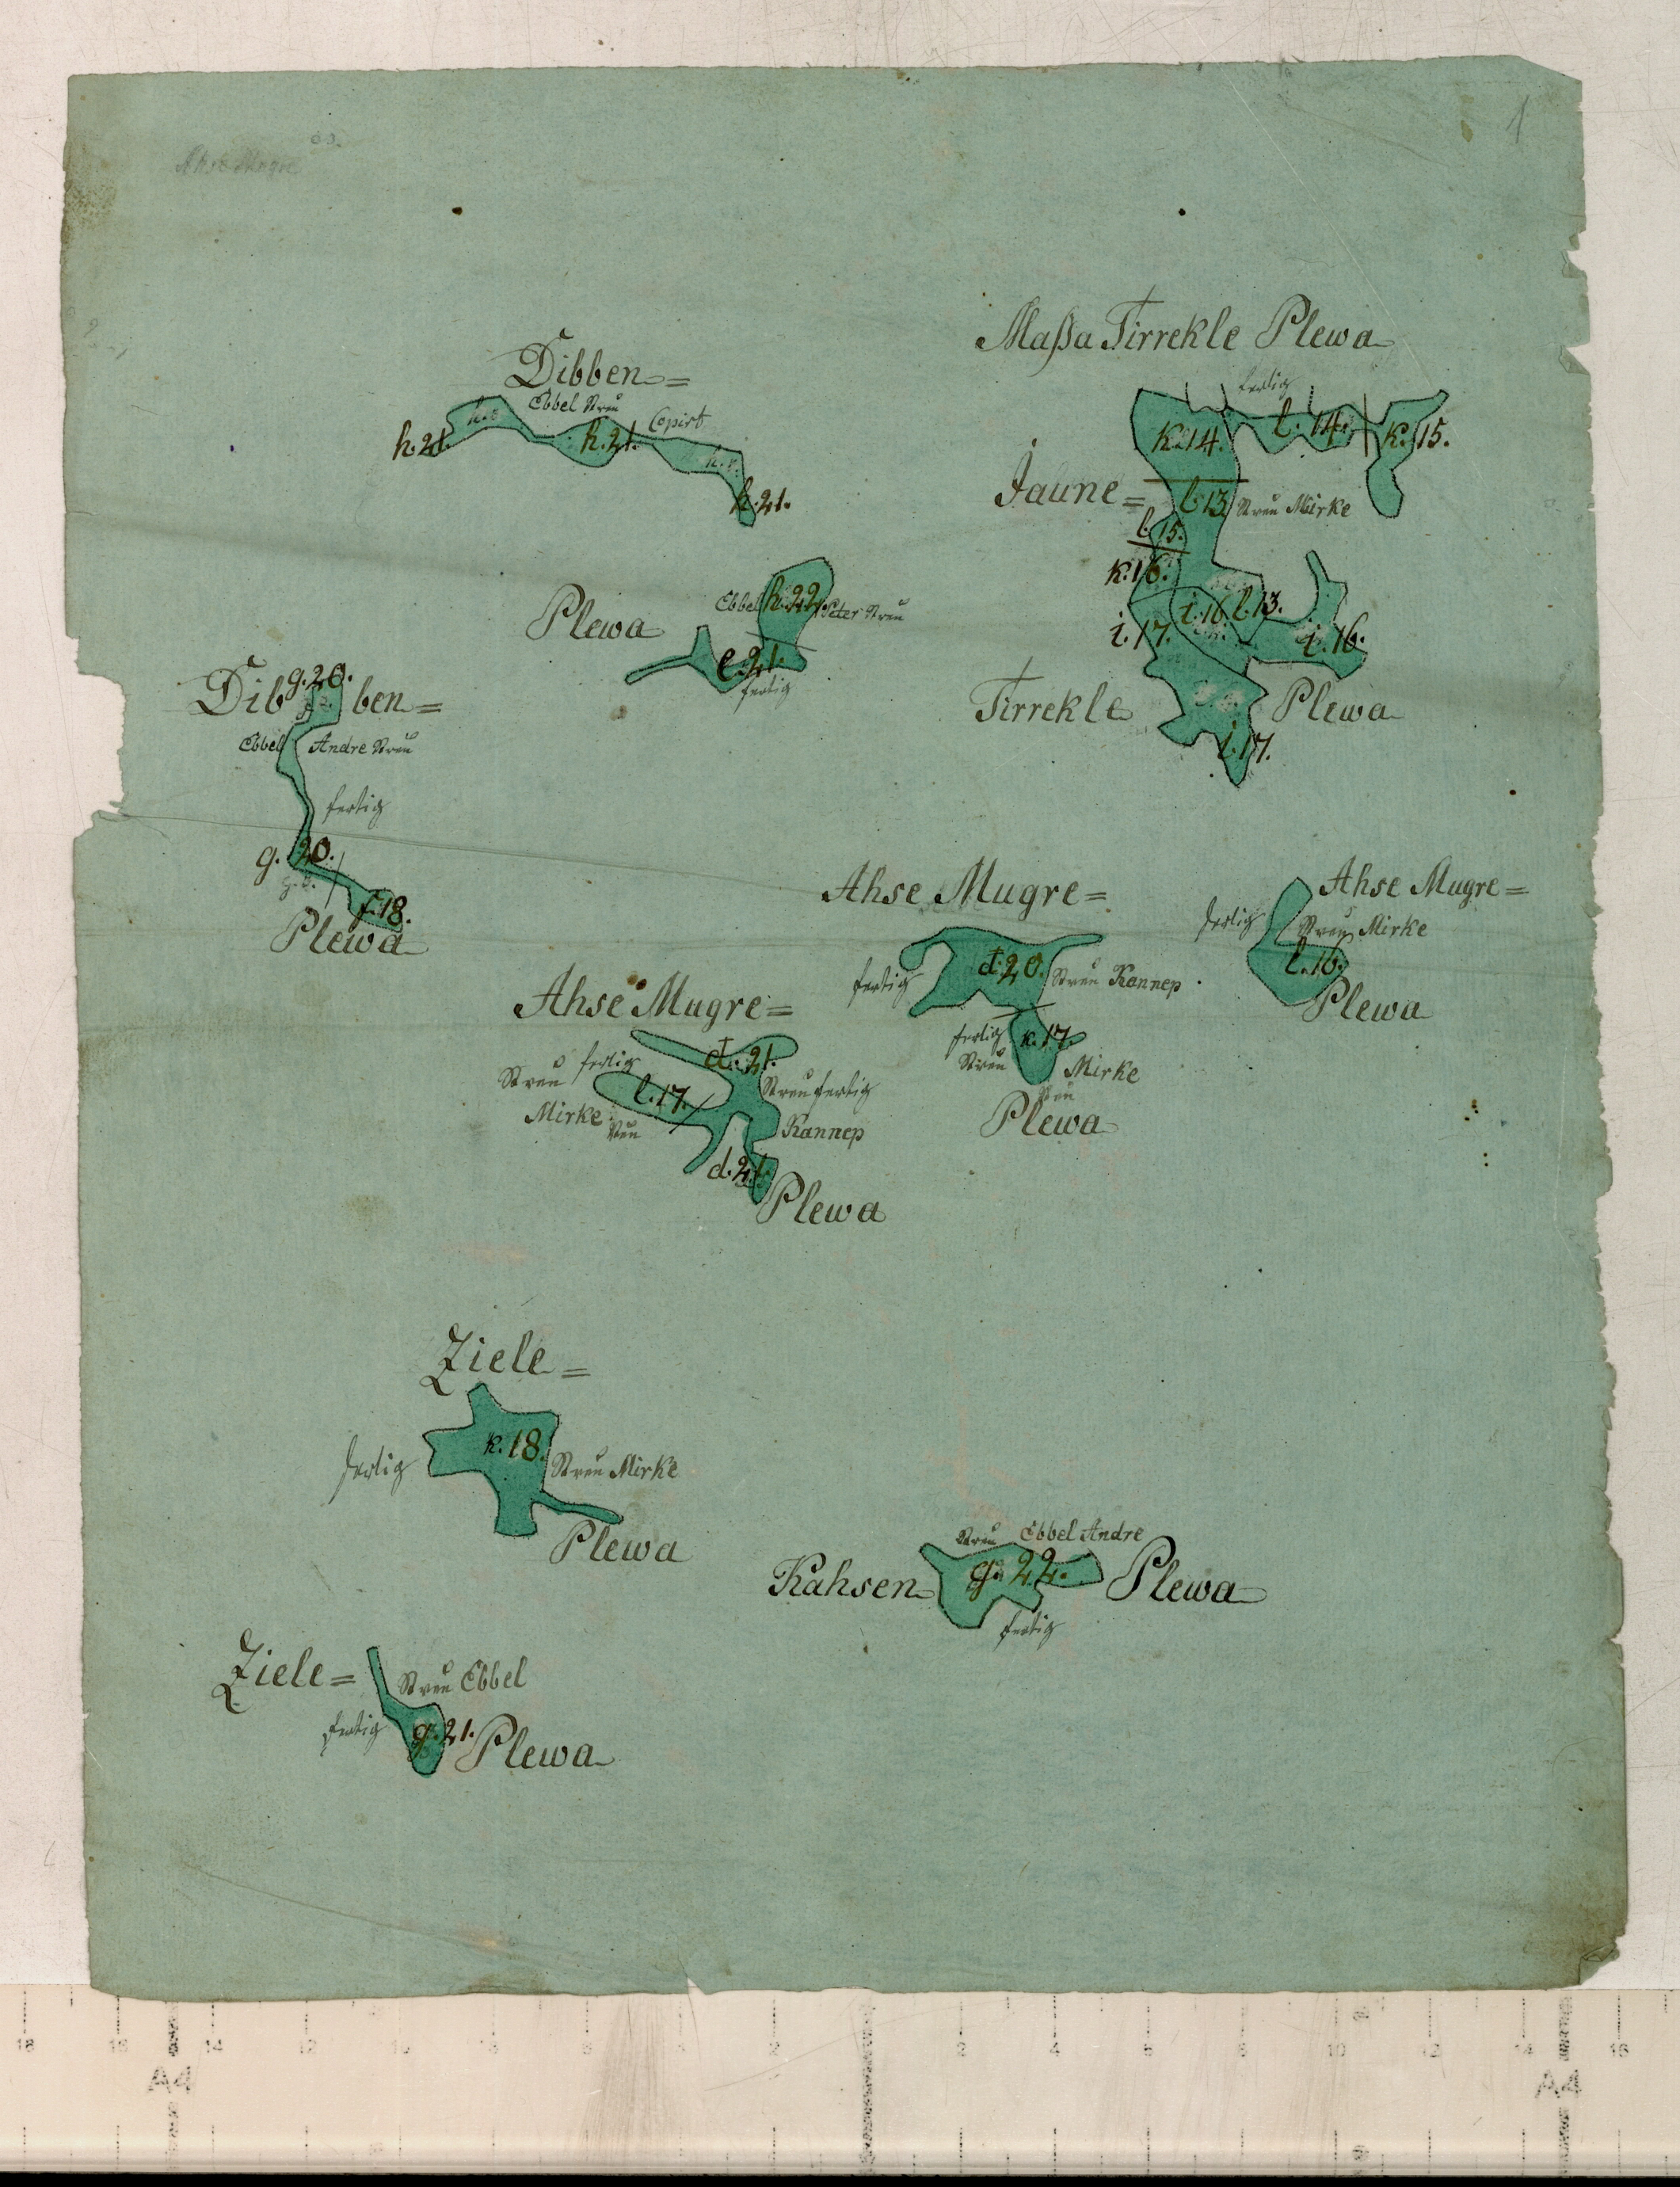 1
Ahse Mugre
Maßa Tirrekle Plewa
fertig
k.14.
l.14.
k.15.
Jaune=
l.13.
Streu Mirke
l.15.
k.16.
i.16.
l.13.
i.17.
i.16.
Tirrekle
Plewa
l.17.
Dibben=
Ebbel Streu
Copirt
h.21.
h.21.
h.21.
Plewa
Ebbel
h.22.
Peter Streu
e.21.
fertig
g.20.
Dibben=
Ebbel Andre Streu
fertig
g.20.
f.18.
Plewa
Ahse Mugre=
fertig
d.20.
Streu Kannep
fertig
k.17.
Streu
Mirke
Plewa
Ahse Mugre=
fertig
Streu Mirke
l.16.
Plewa
Ahse Mugre=
Streu fertig
d.21.
l.17.
Streu fertig
Mirke
Kannep
d.21.
Plewa
Ziele=
fertig
k.18.
Streu Mirke
Plewa
Streu Ebbel Andre
Kahsen
g.22.
Plewa
fertig
Ziele=
Streu Ebbel
fertig
g.21.
Plewa
A4
A4